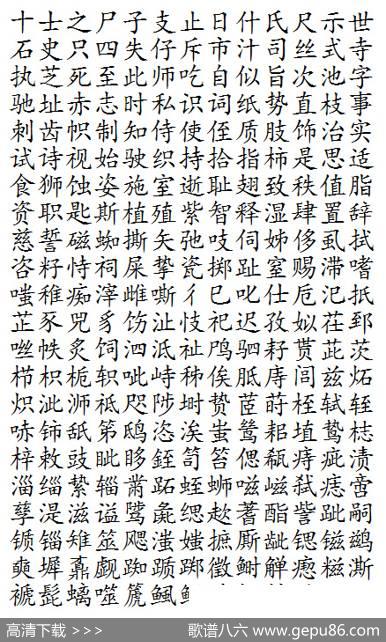 十士之尸子支止日什氏尺示世
石史只四失仔斥市汁司丝式寺
执芝死至此师吃自似旨次池字
驰址赤志时私识词纸势直枝事
刺齿帜制知侍使侄质肢饰治实
试诗视始驶织持拾指柿是思适
食狮蚀姿施室逝耻翅致秩值脂
资职匙斯植殖紫智释湿肆置辞
慈誓磁蜘撕矢弛吱伺姊侈虱拭
咨籽恃祠屎挚瓷掷趾窒赐滞嗜
嗤稚痴滓雌嘶彳巳叱仕卮汜抧
芷豕兕豸饬沚忮祀迟孜姒茌郅
咝帙炙饲泗泜祉鸤驷籽贳茈茨
栉枳栀轵呲峙秭俟胝庤闾兹炻
炽泚浉祗咫陟埘贽茝莳桎轼轾
哧铈舐笫鸱恣涘蚩鸶耜埴鸷梽
梓敕豉眦眵铚笥笞偲瓻痔疵渍
淄缁絷辎黹跖蛭蛳嗞嵫弑痣啻
孳湜滋谥鹭彘缌趑蓍酯訾跐嗣
锧锱雉筮飔滍媸摭厮龇锶镃鹚
奭墀鼒觑踟踬踯徵鲥觯瘛糍澌
褫髭螭噬篪鲺鰤
高清下载 >>> 歌谱八六 www.gepu86.com